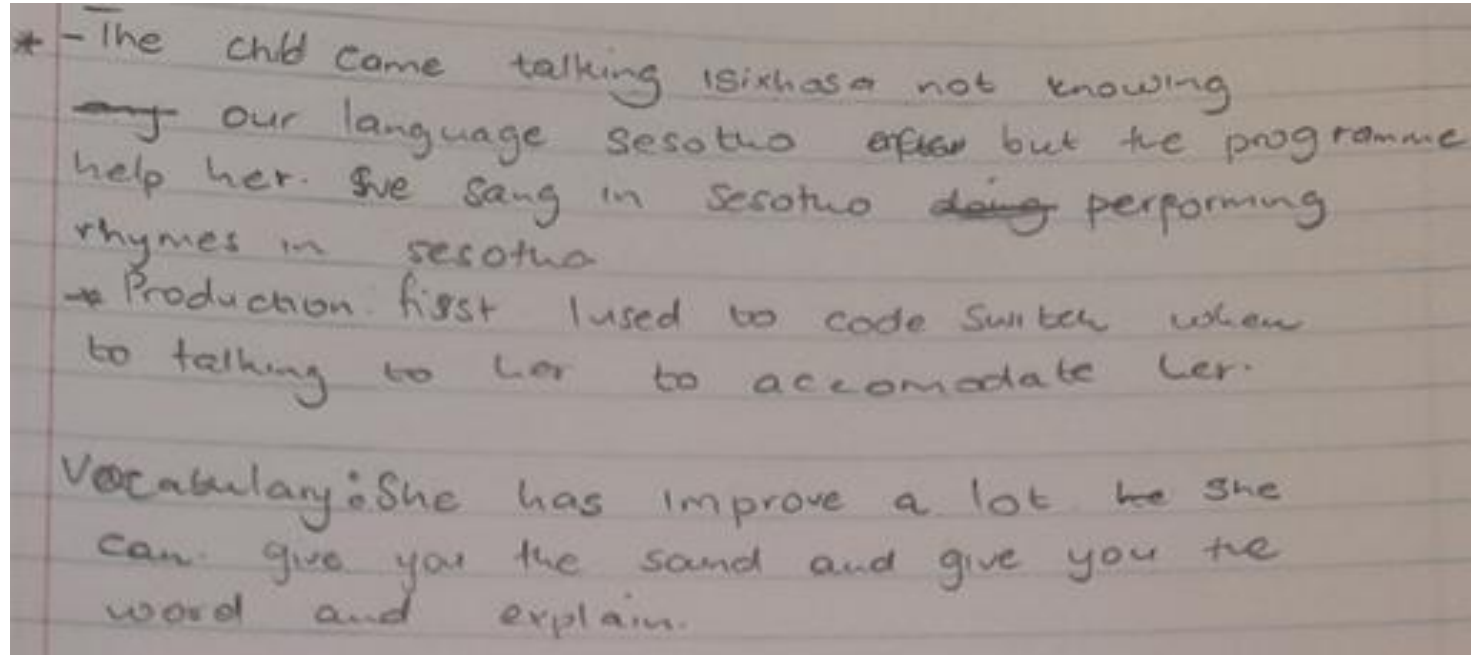 * - The child came talking isixhosa not knowing
our language sesotho but the programme
help her. She sang in sesotho performing
rhymes in sesotho
Production. first I used to code switch when
to talking to her to accomodate her.
Vocabulary: She has improve a lot she
can. give you the sound and give you the
word and explain.